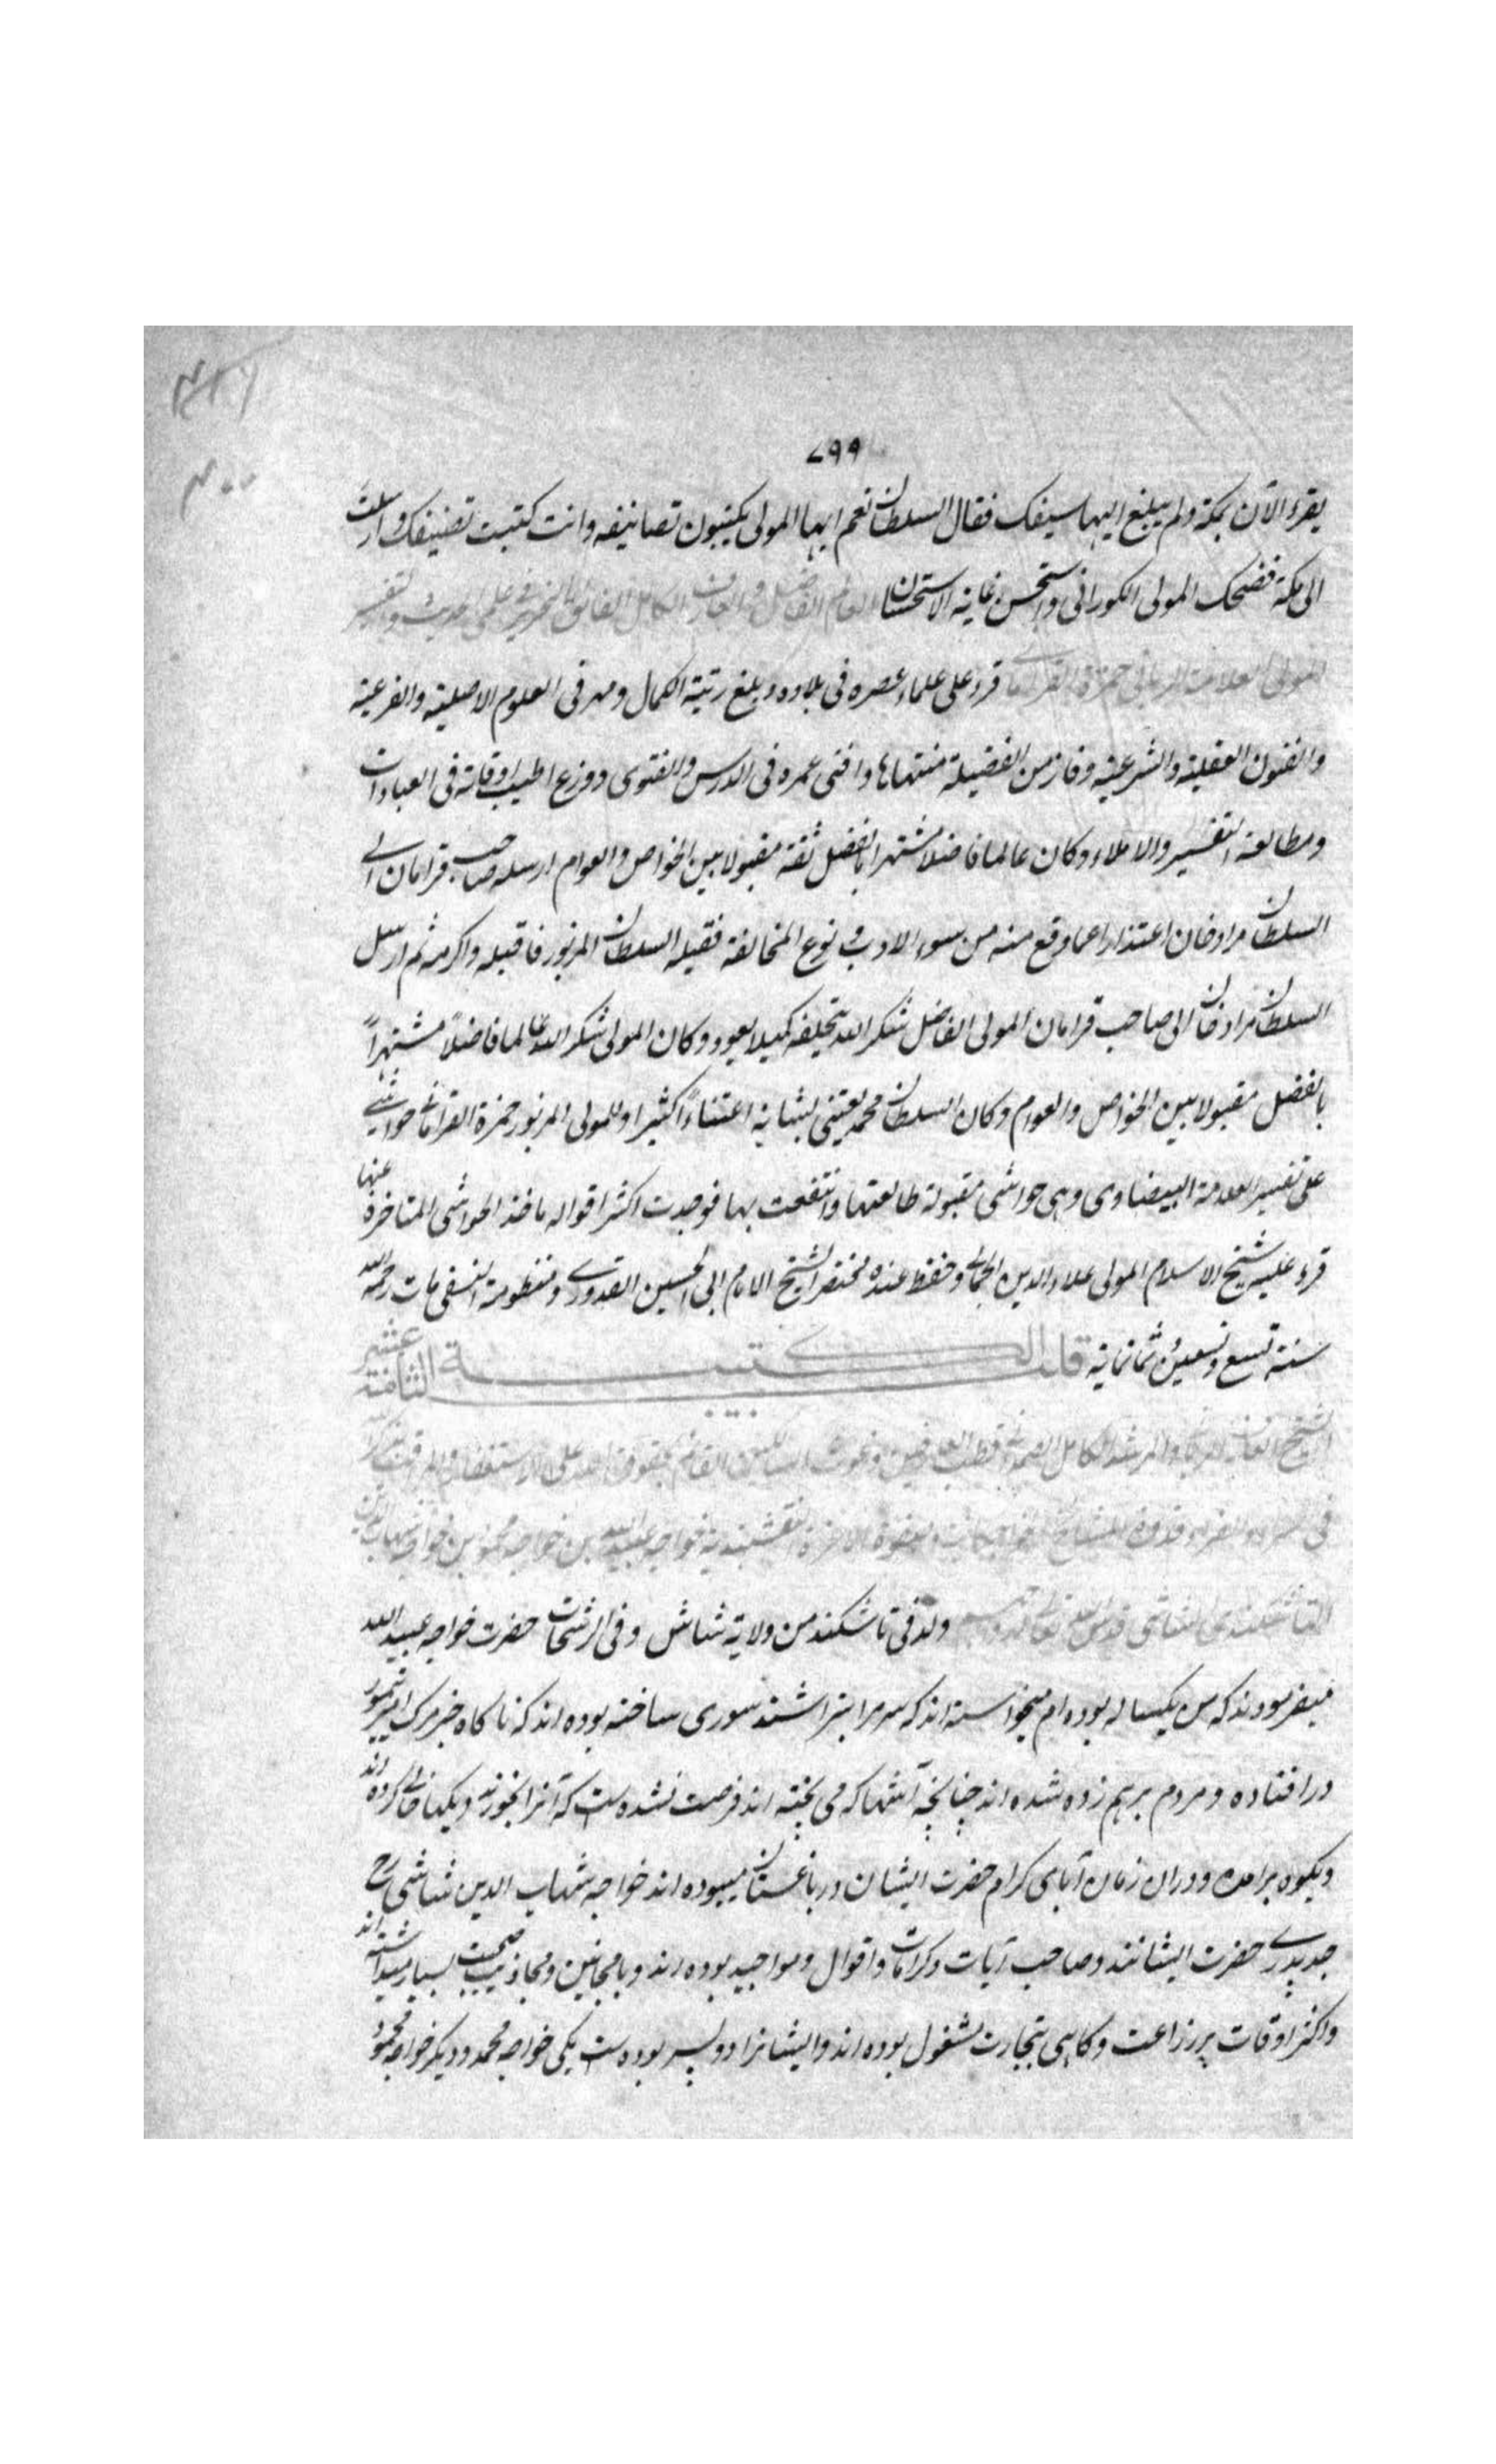 ٧٩٩
يقرء الآن بمكة ولم يبلغ اليها سيفك فقال السلطان نعم ايها المولى يكتبون تصانيفه وانت كتبت تصنيفك وارسلت
الى مكة فضحك المولى الكورانى واستحسن غاية الاستحسان العالم الفاضل والعارف الكامل الفائق النحرير فى علمى الحديث والتفسير
المولى العلامة الربانى حمزة القرامانى قرء على علماء عصره فى بلاده وبلغ رتبة الكمال ومهر فى العلوم الاصلية والفرعية
والفنون العقلية والشرعية وفاز من الفضيلة منتهاها وافنى عمره فى الدرس والفتوى ووزع اطيب اوقاته فى العبادات
ومطالعة التفسير والاملاء وكان عالما فاضلا مشتهرا بالفضل ثقة مقبولا بين الخواص والعوام ارسله صاحب قرامان الى
السلطان مراد خان اعتذارا عما وقع منه من سوء الادب و نوع المخالفة فقبله السلطان المزبور فاقبله واكرمه ثم ارسل
السلطان مراد خان الى صاحب قرامان المولى الفاضل شكر الله بتحليفه كيلا يعود وكان المولى شكر الله عالما فاضلاً مشتهراً
بالفضل مقبولا بين الخواص والعوام وكان السلطان محمد يعتنى بشانه اعتناءً كثيرا وللمولى المزبور حمزة القرامانى حواشى
على تفسير العلامة البيضاوى وهى حواشى مقبولة طالعتها وانتفعت بها فوجدت اكثر اقواله ماخذ الحواشى المتاخرة عنها
قرء عليه شيخ الاسلام المولى علاء الدين الجمالى وحفظ عنده مختصر الشيخ الامام ابى الحسين القدورى ومنظومة النسفى مات رحمه الله
سنة تسع وتسعين وثمانماية قلب الكتيبة الثامنة عشر
الشيخ العارف الربانى والمرشد الكامل الصمدانى قطب العارفين وغوث السالكين القائم بحقوق الله على الاستغفار والمراقب
فى السراء والضراء قدوة المشايخ الخواجكان وصفوة الاعزة النقشبندية خواجه عبيد الله بن خواجه محمود بن خواجه شهاب الدين
التاشكندى الشاشى قدس الله تعالى ولد فى تاشكند من ولاية شاش وفى الرشحات حضرت خواجه عبيد الله
ميفرمودند كه من يكساله بوده ام ميخواسته اند كه سرمرا بتراشند سورى ساخته بوده اند كه ناكاه خبر مرك امير تيمور
در افتاده ومردم برهم زده شده اند چنانچه آشها كه مى پخته اند فرصت نشده است كه آنرا بخورند ديكها خالى كرده اند
وبكوه برامده ودران زمان آباى كرام حضرت ايشان در باغستان ميبوده اند خواجه شهاب الدين شاشى رح
جد پدرى حضرت ايشانند وصاحب آيات وكرامات واقوال ومواجيد بوده اند وبا مجانين ومجاذيب صحبت بسيار ميداشته اند
واكثر اوقات بزراعت وكاهى بتجارت مشغول بوده اند وايشانرا دو پسر بوده است يكى خواجه محمد وديكر خواجه محمود